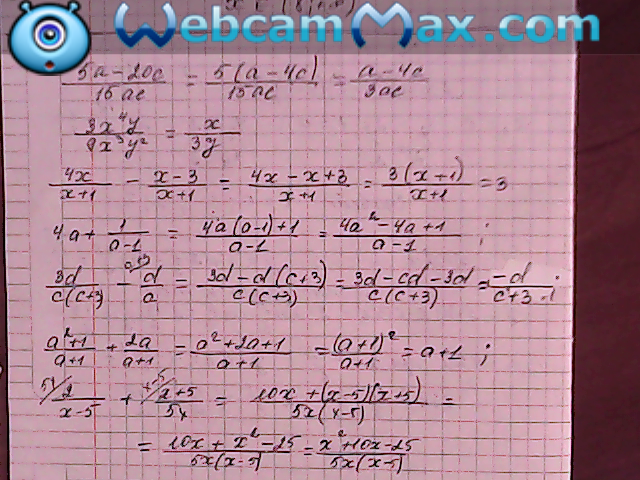 WebcamMax.com
5a-20c/15ac = 5(a-4c)/15ac = a-4c/3ac
3x⁴y/9x³y² = x/3y
4x/x+1 - x-3/x+1 = 4x-x+3/x+1 = 3(x+1)/x+1 = 3
4a+ 1/a-1 = 4a(a-1)+1/a-1 = 4a²-4a+1/a-1 ;
3d/c(c+3) - d/a = 3d-d(c+3)/c(c+3) = 3d-cd-3d/c(c+3) = -d/c+3 ;
a²+1/a+1 + 2a/a+1 = a²+2a+1/a+1 = (a+1)²/a+1 = a+1 ;
2/x-5 + x+5/5x = 10x+(x-5)(x+5)/5x(x-5) =
= 10x+x²-25/5x(x-5) = x²+10x-25/5x(x-5)